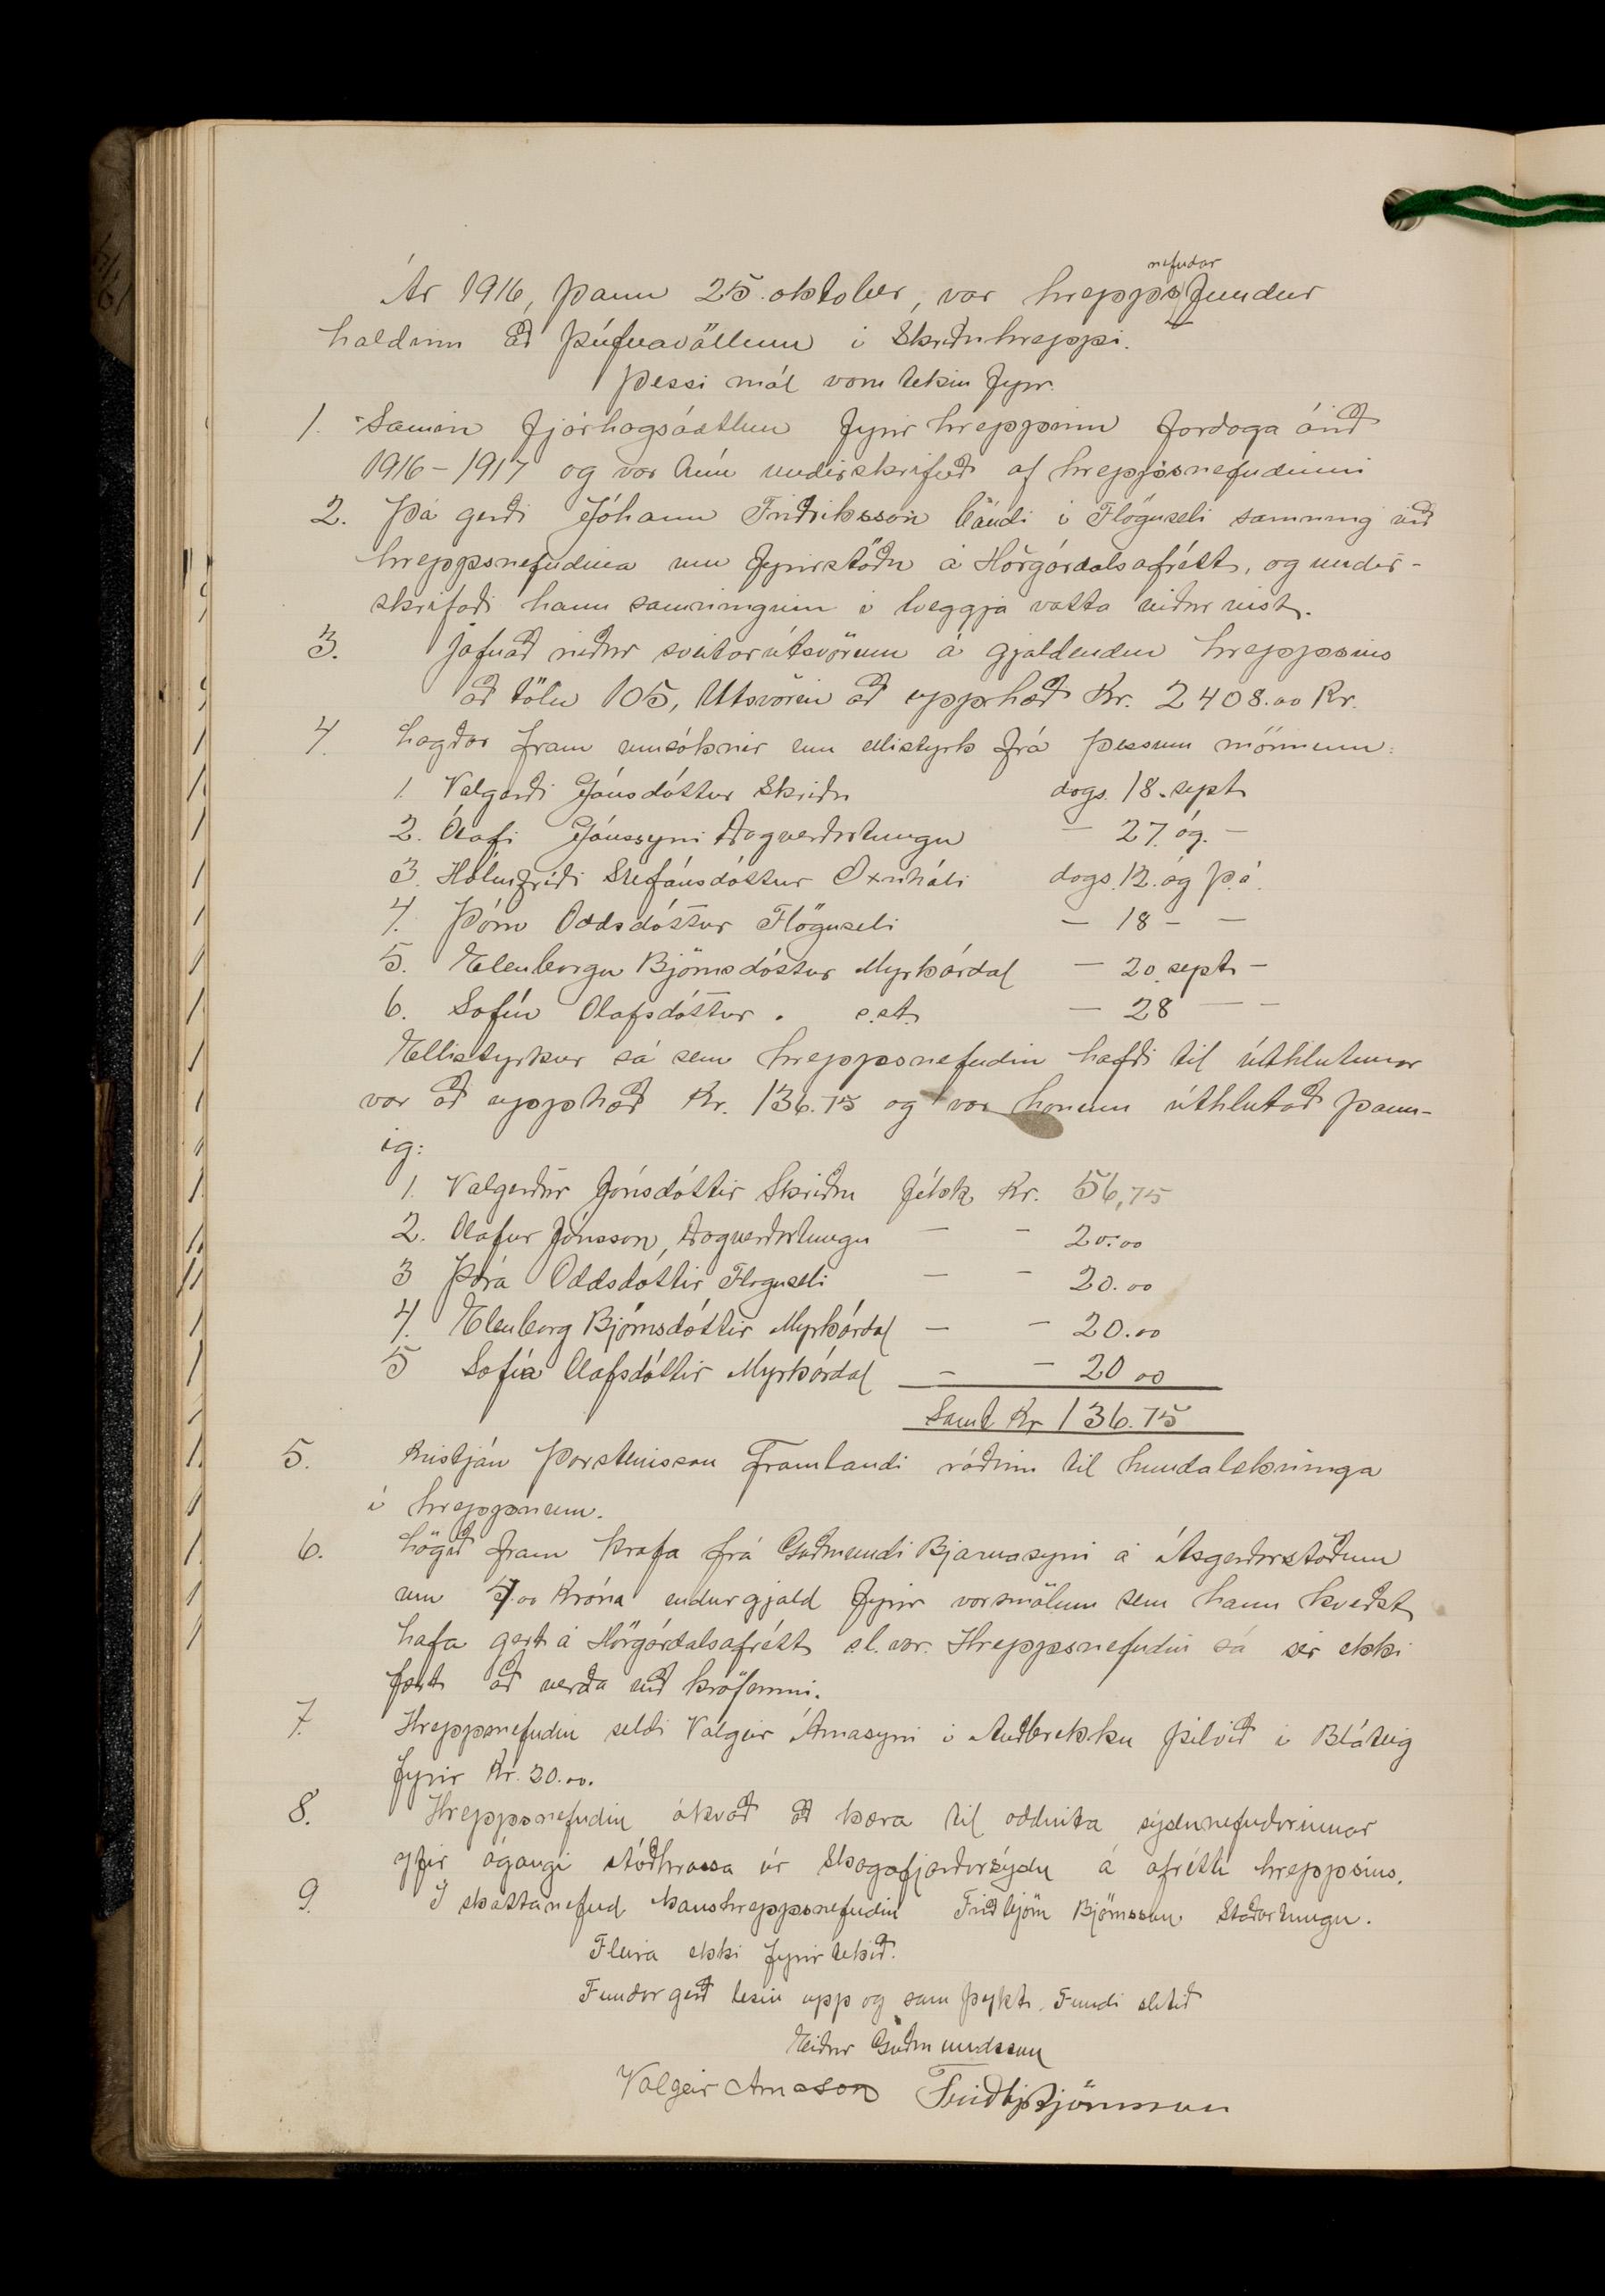 Ár 1916, þann 25. oktober, var hrepps nefndar fundur
haldinn að Þúfnavöllum i Skriðuhreppi.
Þessi mál voru tekin fyrir.
1. Samin fjárhagsáætlun fyrir hreppinn fardaga árið
1916-1917 og var hún undirskrifuð af hreppsnefndinni
2. Þá gerði Jóhann Friðriksson bóndi i Flöguseli samning við
hreppsnefndina um fyrirstöðu á Hörgárdalsafrétt, og under-
skrifaði hann samninginn i tveggja votta viðurvist.
3. Jafnað niður sveitarútsvörum á gjaldendur hreppsins
að tölu 105, Utsvörin að upphæð Kr. 2408.00 Kr.
4. Lagðar fram umsóknir um ellistyrk frá þessum mönnum:
1. Valgerði Jónsdóttur Skriðu dags. 18. sept
2. Ólafi Jónssyni Dagverðartungu — 27. ág. —
3. Hólmfríði Stefánsdóttur Öxnhóli dags. 12. ág þ.á.
4. Þóru Oddsdóttur Flöguseli — 18 — —
5. Elenborgu Björnsdóttur Myrkárdal — 20. sept —
6. Sofíu Olafsdóttur . s.st. — 28 — —
Ellistyrkur sá sem hreppsnefndin hafði til úthlutunar
var að upphæð Kr. 136.75 og var honum úthlutað þann-
ig:
1. Valgerður Jónsdóttir Skriðu fékk Kr. 56,75
2. Olafur Jónsson, Dagverðartungu — — 20.00
3 Þóra Oddsdóttir Floguseli — — 20.00
4. Elenborg Björnsdóttir Myrkárdal — — 20.00
5 Sofía Olafsdóttir Myrkárdal — — 20 00
Samt Kr 136.75
5. Kristján Þorsteinsson Framlandi ráðinn til hundalækninga
i hreppnum.
6. Lögð fram krafa frá Guðmundi Bjarnasyni á Ásgerðarstöðum
um .00 króna endurgjald fyrir vorsmölun sem hann kveðst
hafa gert á Hörgárdalsafrétt s.l. vor. Hreppsnefndin sá sér ekki
fært að verða við kröfunni.
7. Hreppsnefndin seldi Valgeir Árnasyni i Auðbrekku þilvið i Bláteig
fyrir Kr. 30.00.
8. Hreppsnefndin ákvað að kæra til oddvita sýslunefndarinnar
yfir ágangi stóðhrossa úr Skagafjarðarsýslu á afrétti hreppsins.
9. Í skattanefnd kaus hreppsnefndin Friðbjörn Björnsson Staðartungu.
Fleira ekki fyrirtekið.
Fundargerð lesin upp og samþykt. Fundi slitið
Eiður Guðmundsson
Valgeir Arnason Friðbj Björnsson